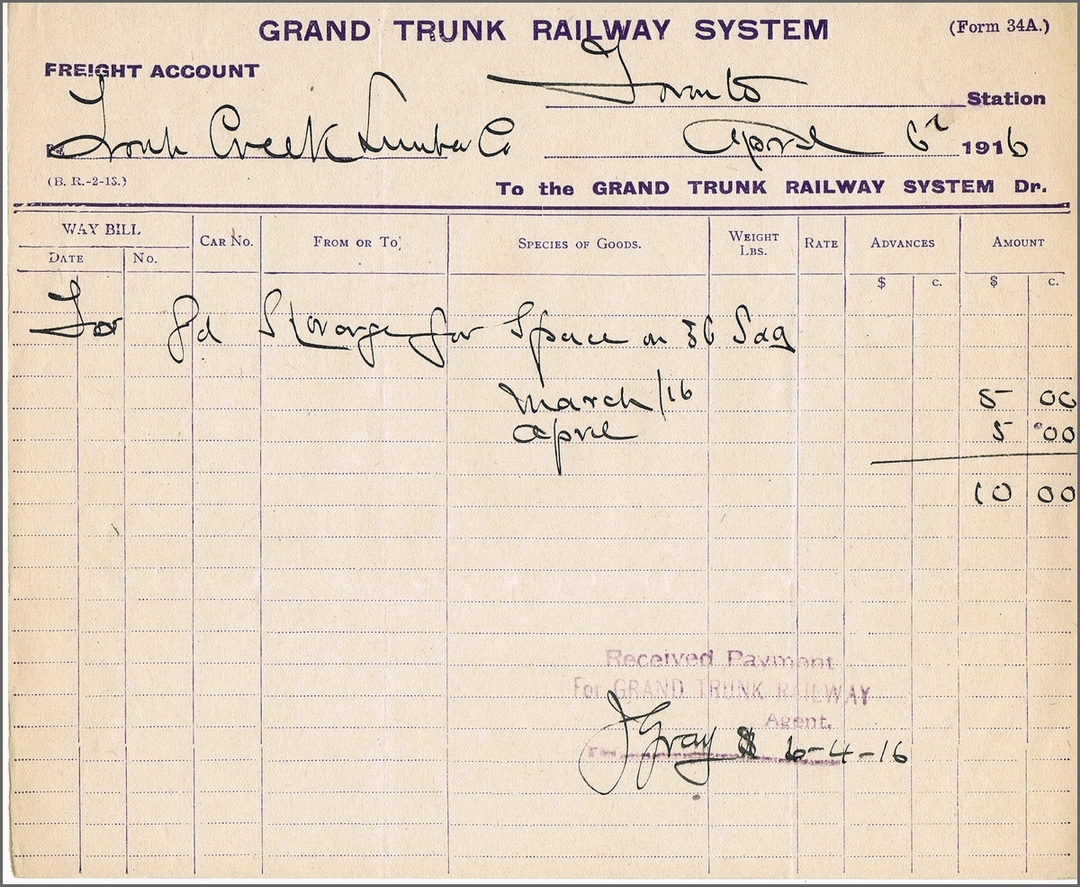 GRAND TRUNK RAILWAY SYSTEM
(Form 34A.)
FREIGHT ACCOUNT
Toronto Station
Creek Lumber Co
April 6th 1916
(B. R.-2-15.)
To the GRAND TRUNK RAILWAY SYSTEM Dr.
WAY BILL
DATE No. CAR No. FROM OR TO SPECIES OF GOODS. WEIGHT LBS. RATE ADVANCES AMOUNT
$ c. $ c.
For Gd Storage for Space on
March/16 5 00
April 5 00
10 00
Received Payment
For GRAND TRUNK RAILWAY
Agent.
J Gray 6-4-16